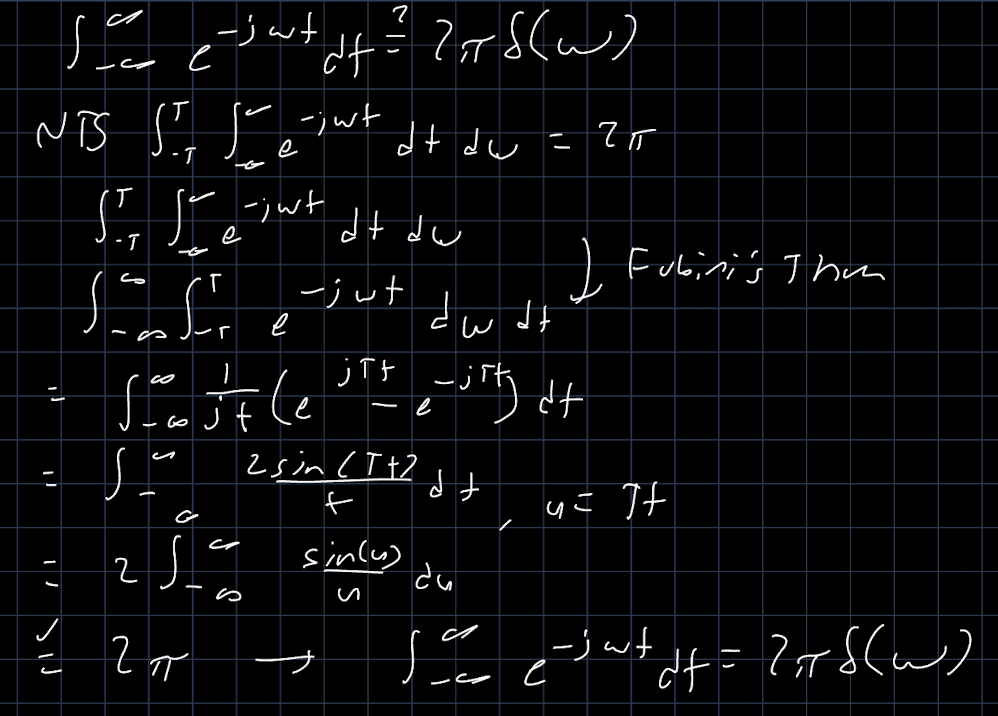 ∫_{-∞}^{∞} e^{-jωt} dt ≟ 2πδ(ω)
NTS ∫_{-T}^{T} ∫_{-∞}^{∞} e^{-jωt} dt dω = 2π
∫_{-T}^{T} ∫_{-∞}^{∞} e^{-jωt} dt dω
∫_{-∞}^{∞} ∫_{-T}^{T} e^{-jωt} dω dt ) Fubini's Thm
= ∫_{-∞}^{∞} \frac{1}{jt} (e^{jTt} - e^{-jTt}) dt
= ∫_{-∞}^{∞} \frac{2sin(Tt)}{t} dt, u = Tt
= 2 ∫_{-∞}^{∞} \frac{sin(u)}{u} du
=^{✓} 2π → ∫_{-∞}^{∞} e^{-jωt} dt = 2πδ(ω)